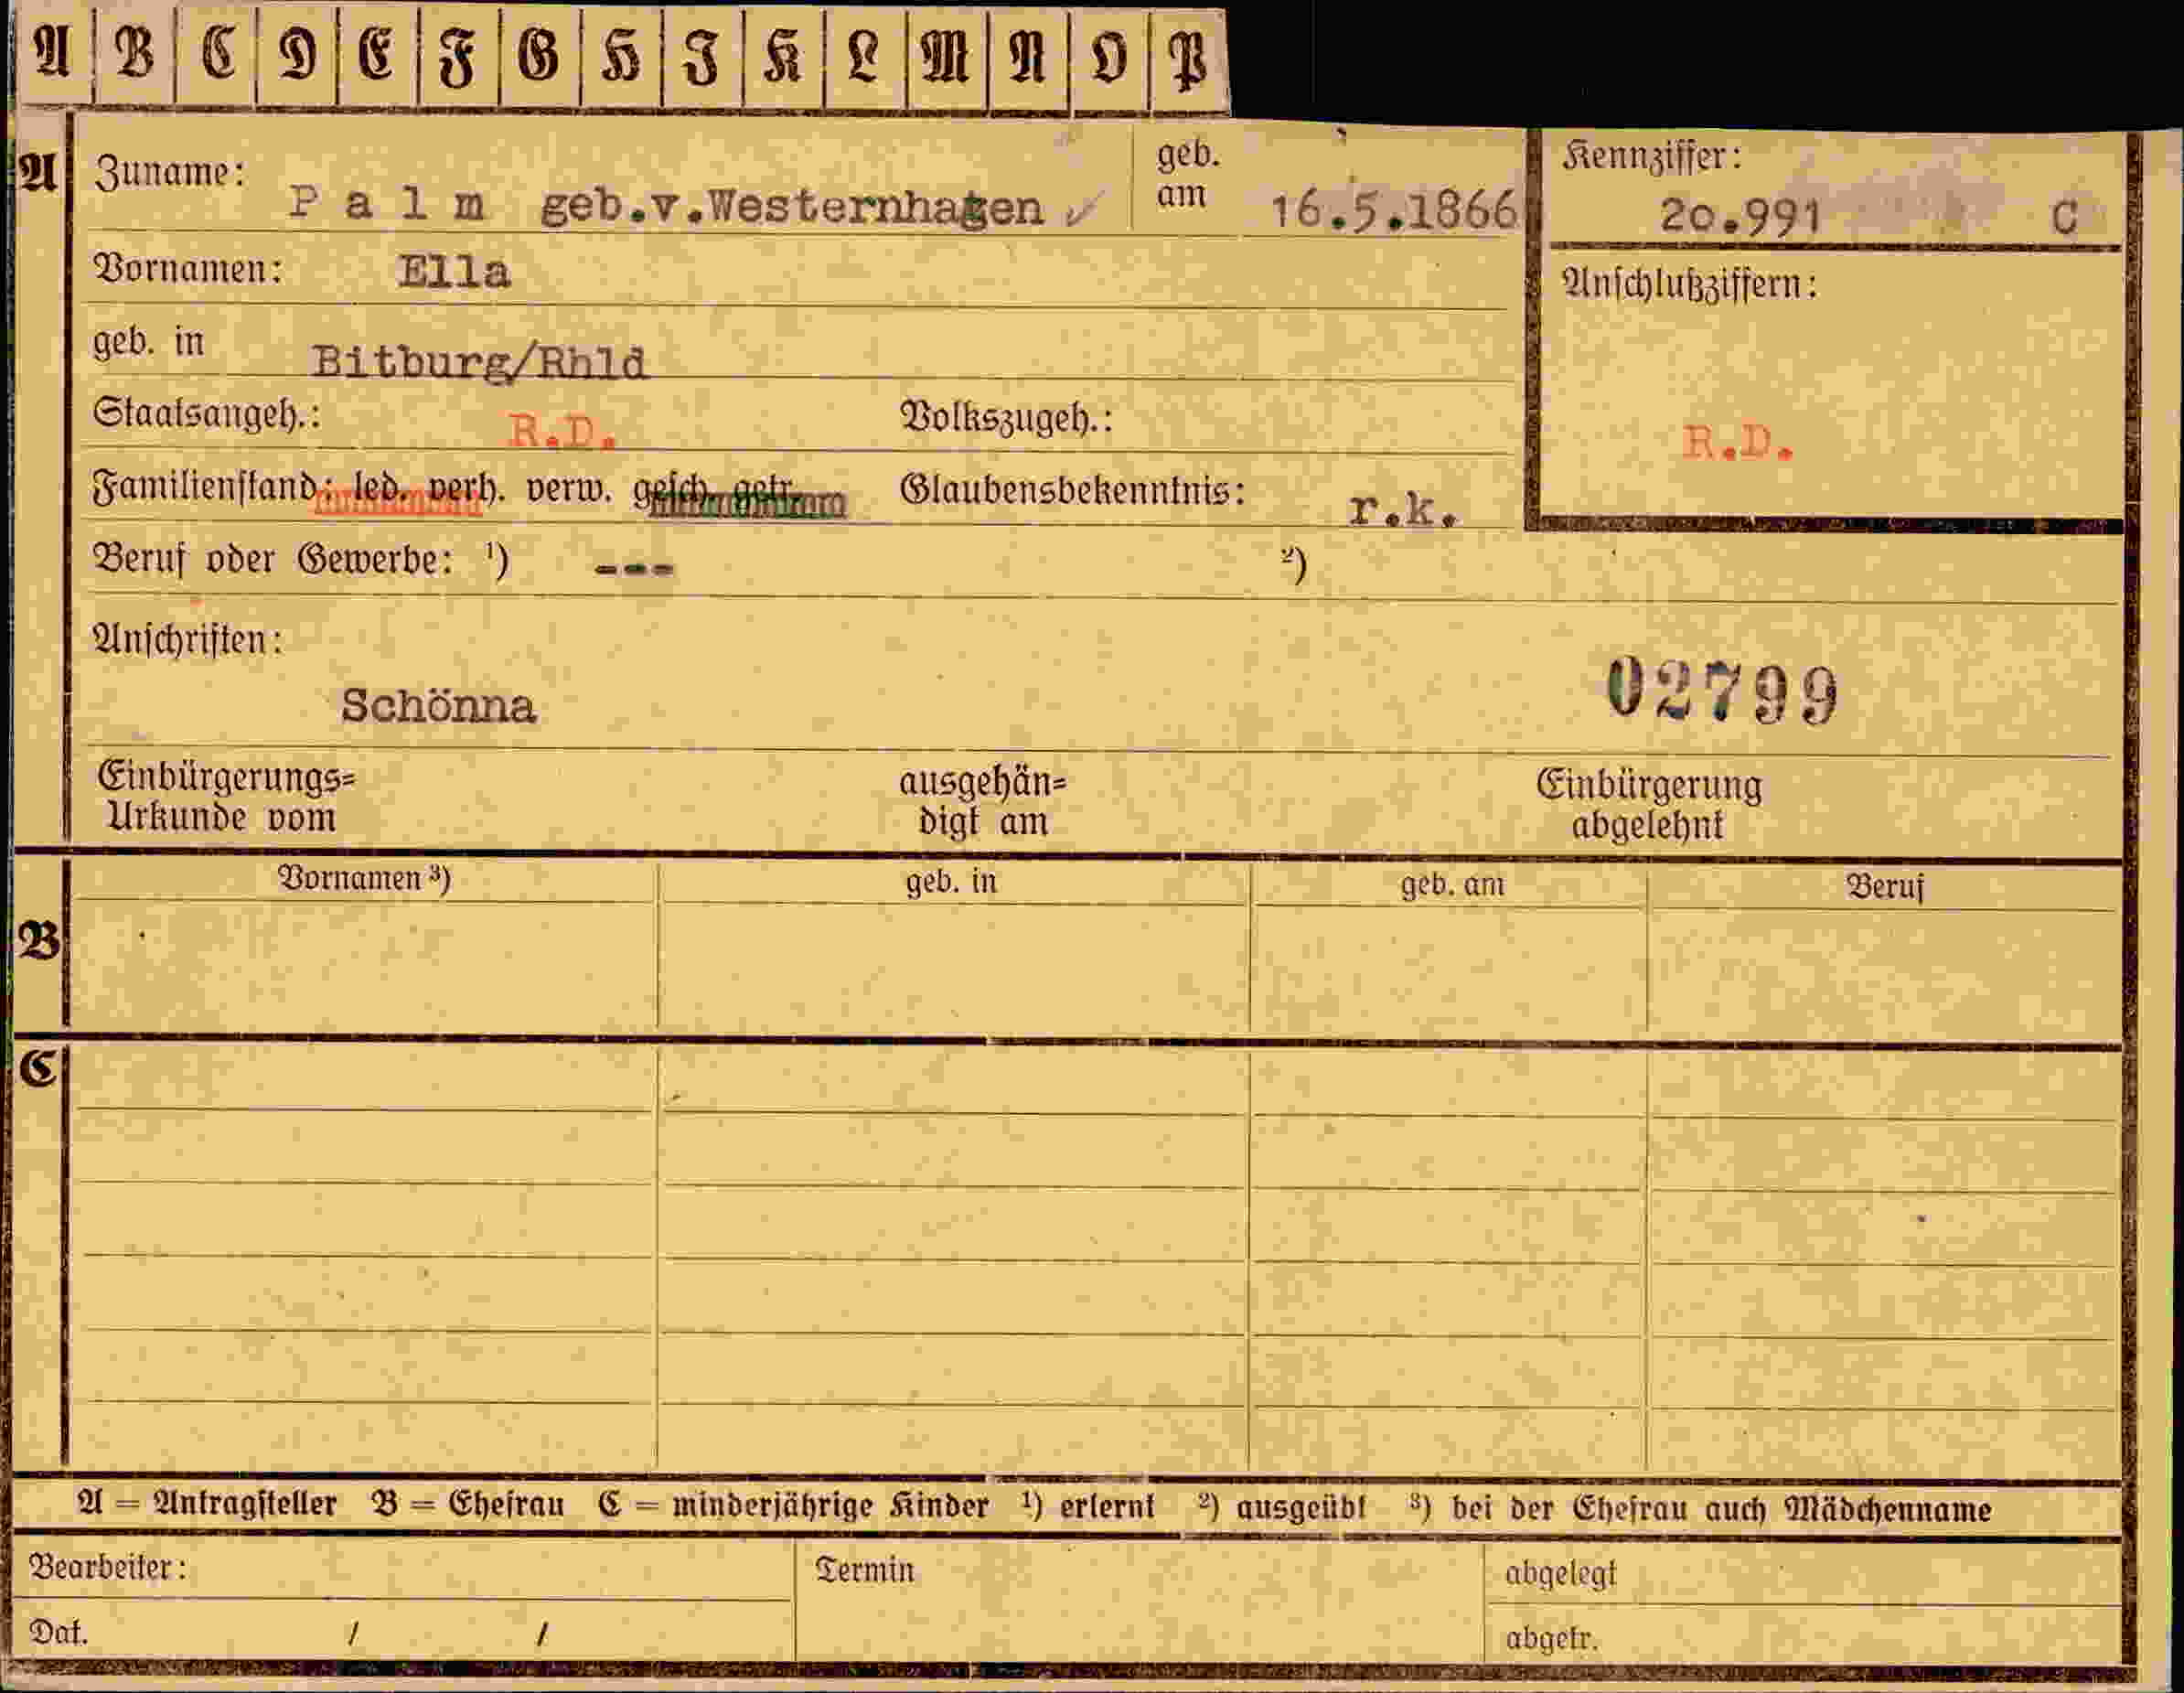 A B C D E F G H I K L M N O P
A Zuname: Palm geb.v.Westernhagen geb. am 16.5.1866 Kennziffer: 20.991 C
Vornamen: Ella Anschlußziffern:
geb. in Bitburg/Rhld
Staatsangeh.: R.D. Volkszugeh.: R.D.
Familienstand: led. verh. verw. gesch. getr. Glaubensbekenntnis: r.k.
Beruf oder Gewerbe: ¹) --- ²)
Anschriften:
Schönna 02799
Einbürgerungs= ausgehän= Einbürgerung
Urkunde vom digt am abgelehnt
Vornamen ³) geb. in geb. am Beruf
B
C
A = Antragsteller B = Ehefrau C = minderjährige Kinder ¹) erlernt ²) ausgeübt ³) bei der Ehefrau auch Mädchenname
Bearbeiter: Termin abgelegt
Dat. / / abgetr.